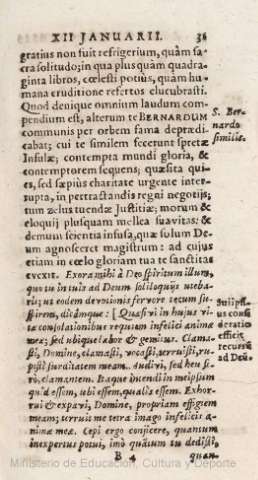 XII JANUARII. 36
gratius non fuit refrigerium, quàm sa-
cra solitudo; in qua plus quàm quadra-
ginta libros, cœlesti potiùs, quam hu-
mana eruditione refertos elucubrasti.
Quod denique omnium laudum com-
pendium est, alterum te BERNARDUM
communis per orbem fama deprædi-
cabat; cui te similem fecerunt spretæ
Insulæ; contempta mundi gloria, &
contemptorem sequens; quæsita qui-
es, sed sæpiùs charitate urgente inter-
rupta, in pertractandis regni negotijs;
tum zelus tuendæ Justitiæ; morum &
eloquij plusquam mellea suavitas; &
demum scientia infusa, quæ solum De-
um agnosceret magistrum: ad cujus
etiam in cœlo gloriam tua te sanctitas
evexit. Exora mihi à Deo spiritum illum,
quo tu in tuis ad Deum soliloquijs uteba-
ris; ut eodem devotionis fervore tecum su-
spirem, dicámque: [Quæsivi in hujus vi-
tæ consolationibus requiem infelici animæ
meæ; sed ubique labor & gemitus. Clama-
sti, Domine, clamasti, vocasti, terruisti, ru-
pisti surditatem meam. Audivi, sed heu se-
rò, clamantem. Itaque inendi in meipsum
quid essem, ubi essem, qualis essem. Exhor-
rui & expavi, Domine, propriam effigiem
meam; terruit me tetra imago infelicis a-
nimæ meæ. Cepi ergo conijcere, quantum
inexpertus potui, imò quātum tu dedisti,
B 4 quan-
S. Ber-
nardo
similis.
Sui ipsi-
us consi-
deratio
efficit
recursū
ad Deū.
Ministerio de Educación, Cultura y Deporte